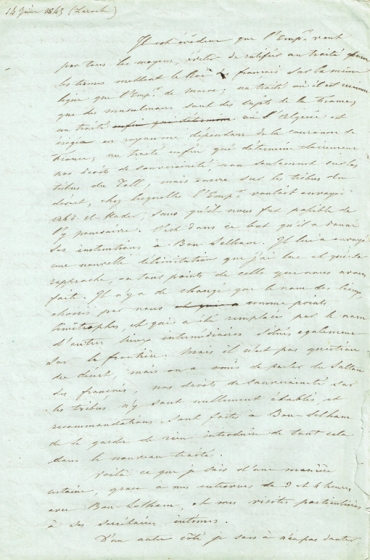 14 Juin 1845 (Larache)
Il est évident que l'Emp.r veut
par tous les moyens, éviter de ratifier un traité dont
les termes mettent le Roi de français sur la même
ligne que l'Emp.r de maroc; un traité où il est reconnu
que des musulmans sont des sujets de la France;
un traité où l'Algérie est
érigée en royaume dépendant de la couronne de
France; un traité enfin qui détermine clairement
nos droits de souveraineté non seulement sur les
tribus du Tell, mais encore sur les tribus du
désert, chez lesquelles l'Emp.r voulait envoyer
Abd-el-Kader, sans qu'il nous fut possible de
l'y poursuivre. C'est dans ce but qu'il a donné
ses instructions à Bou-Selham. Il lui a envoyé
une nouvelle délimitation que j'ai lue et qui se
rapproche, en tout point de celle que nous avons
faite. Il n'y a de changé que le nom des lieux
choisis par nous comme points
limitrophes et qui a été remplacé par le nom
d'autres lieux intermédiaires situés également
sur la frontière. mais il n'est pas question
du désert, mais on a omis de parler du Sultan
des français, nos droits de souveraineté sur
les tribus n'y sont nullement établis, et
recommandations sont faites à Bou-Selham
de se garder de rien introduire de tout cela
dans le nouveau traité.
Voilà ce que je sais d'une manière
certaine, grâce à mes entrevues de 2 et 4 heures,
avec Bou-Selham, et mes visites particulières
à ses secrétaires intimes.
D'un autre côté je sais à n'en pas douter